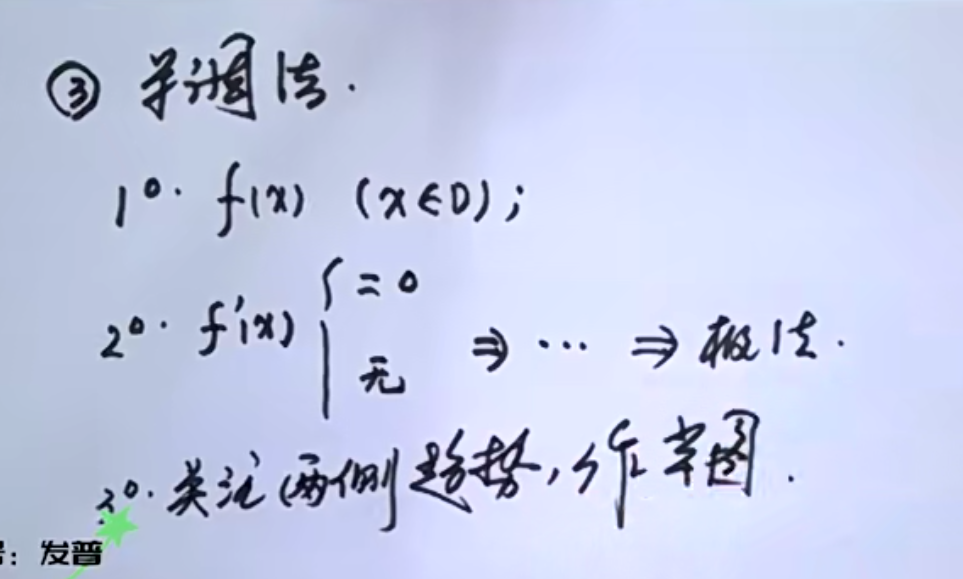 ③ 单调法.
1°. f(x) (x∈D);
2°. f'(x) { =0
无 ⇒ … ⇒ 极值.
3°. 关注两侧趋势, 作草图.
号: 发普